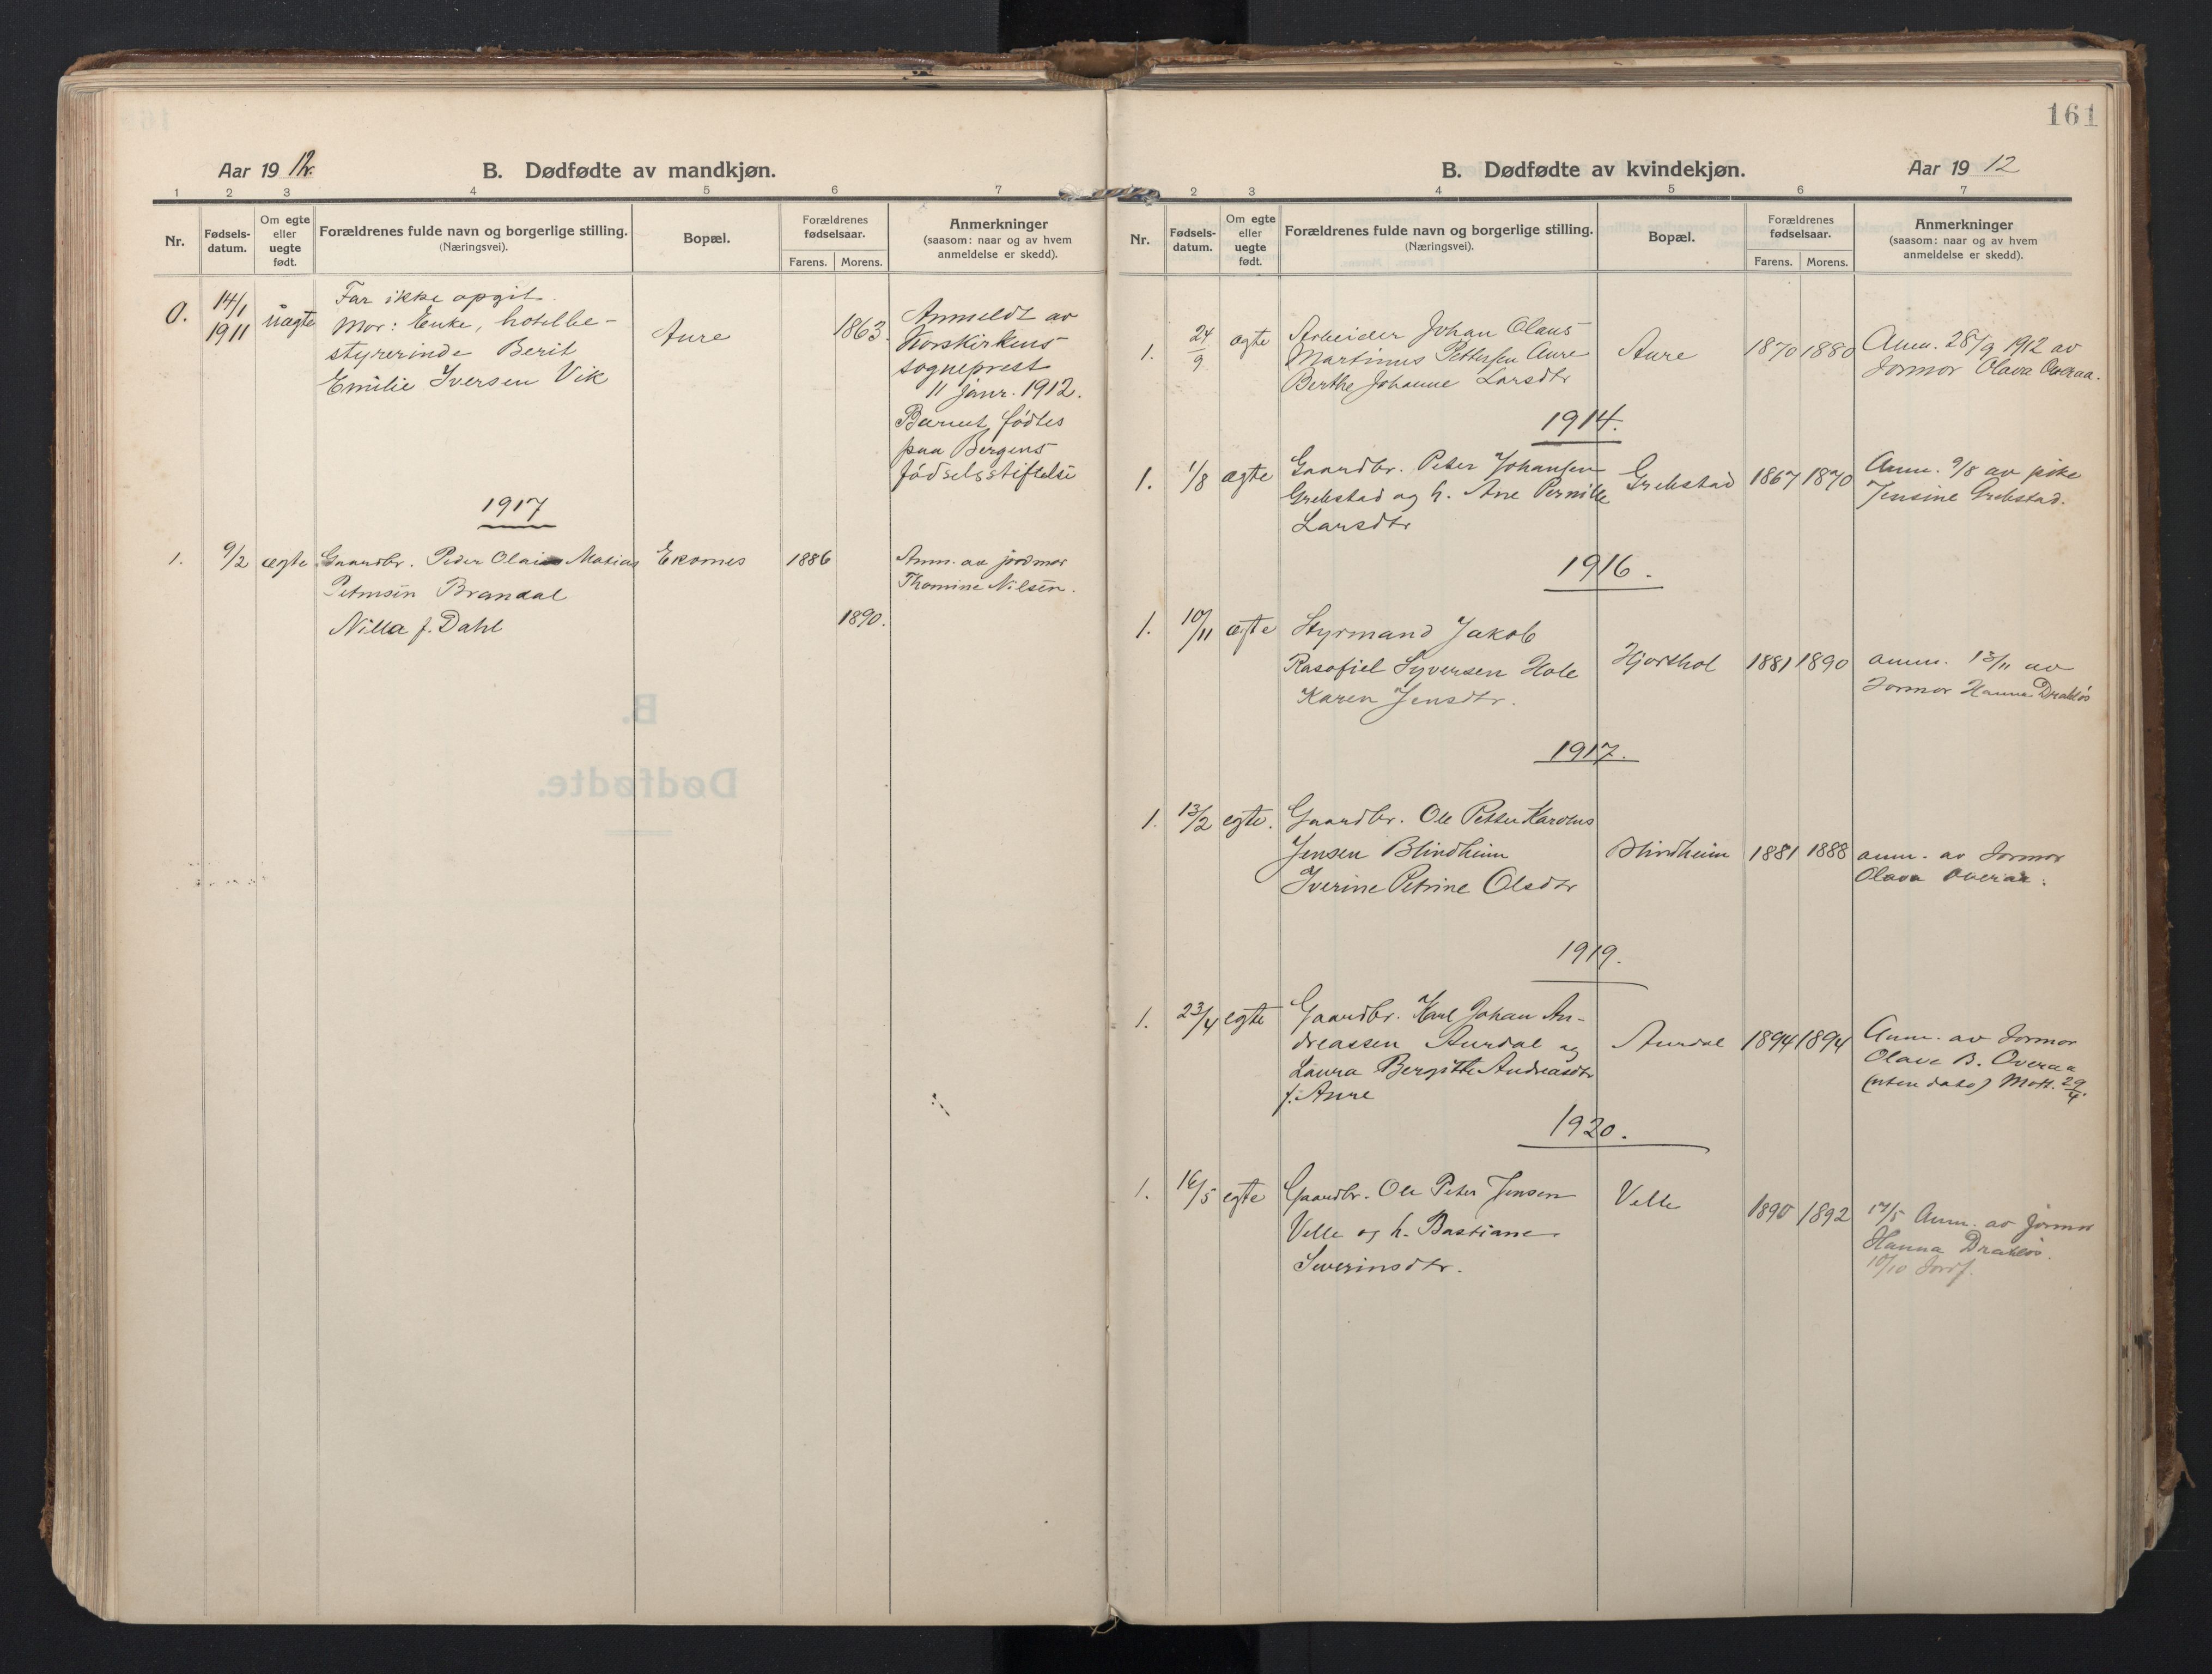 161
Aar 1912.
B. Dødfødte av mandkjøn.
1 2 3 4 5 6 7
Nr.
Fødsels-
datum.
Om egte
eller
uegte
født.
Forældrenes fulde navn og borgerlige stilling.
(Næringsvei).
Bopæl.
Forældrenes
fødselsaar.
Farens. Morens.
Anmerkninger
(saasom: naar og av hvem
anmeldelse er skedd).
0. 14/1 1911 uægte
Far ikke opgit.
Mor: Enke, hotelbe-
styrerinde Berit
Emilie Iversen Vik
Aure
1863.
Anmeldt av
Korskirkens
sogneprest
11 janr. 1912.
Barnet fødtes
paa Bergens
fødselsstiftelse
1917
1. 9/2 ægte
Gaardbr. Peder Olai Matias
Petersen Brandal
Nilla f. Dahl
Ekornes
1886
1890.
Anm. av jordmor
Thomine Nilsen.
B.
Dødfødte.
B. Dødfødte av kvindekjøn.
Aar 1912
2 3 4 5 6 7
Nr.
Fødsels-
datum.
Om egte
eller
uegte
født.
Forældrenes fulde navn og borgerlige stilling.
(Næringsvei).
Bopæl.
Forældrenes
fødselsaar.
Farens. Morens.
Anmerkninger
(saasom: naar og av hvem
anmeldelse er skedd).
1. 24/9 ægte
Arbeider Johan Olaus
Martinus Pettersen Aure
Berthe Johanne Larsdtr
Aure
1870 1880
Anm. 28/9 1912 av
Jormor Olava Overaa.
1914.
1. 1/8 ægte
Gaardbr. Peter Johansen
Grebstad og h. Ane Pernille
Larsdtr
Grebstad
1867 1870
Anm. 9/8 av pike
Jensine Grebstad.
1916.
1. 10/11 ægte
Styrmand Jakob
Rasofiel Syversen Hole
Karen Jensdtr.
Hjorthol
1881 1890
anm. 13/11 av
Jormor Hanna Drabløs
1917.
1. 13/2 egte.
Gaardbr. Ole Petter Karolus
Jensen Blindheim
Iverine Petrine Olsdtr
Blindheim
1881 1888
anm. av Jormor
Olava Overaa.
1919.
1. 23/4 egte
Gaardbr. Karl Johan An-
dreassen Aurdal og
Laura Bergitte Andreasdtr
f. Aure
Aurdal
1894 1894
Anm. av Jormor
Olava B. Overaa
(uten dato) Mott. 29/4.
1920.
1. 16/5 egte
Gaardbr. Ole Peter Jensen
Velle og h. Bastiane
Severinsdtr.
Velle
1890 1892
17/5 Anm. av jormor
Hanna Drabløs.
10/10 Jordf.